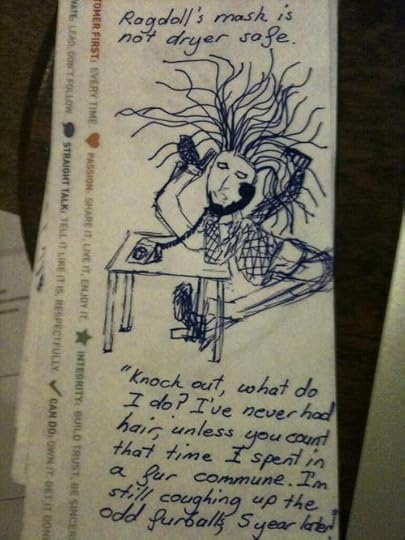 Ragdoll's mask is
not dryer safe.
"Knock out, what do
I do? I've never had
hair, unless you count
that time I spent in
a fur commune. I'm
still coughing up the
odd furballs, 5 year later."
TOMER FIRST: EVERY TIME PASSION: SHARE IT, LIVE IT, ENJOY IT. INTEGRITY: BUILD TRUST, BE SINCER
VATE: LEAD, DON'T FOLLOW STRAIGHT TALK: TELL IT LIKE IT IS, RESPECTFULLY. CAN DO: OWN IT, GET IT DON